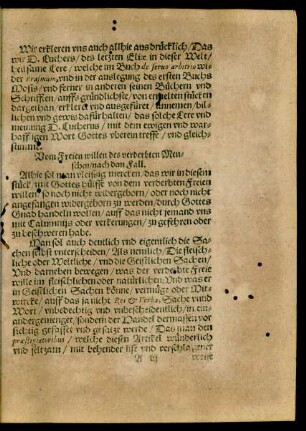 Wir erkleren vns auch allhie ausdrücklich / Das
wir D. Luthers / des letzten Eliæ in dieser Welt /
heilsame Lere / welche im Buch de seruo arbitrio wi-
der Erasmum, vnd in der auslegung des ersten Buchs
Mosis / vnd ferner in anderen seinen Büchern vnd
Schrifften / auffs gründlichste / von ermelten stück en
dargethan / erkleret vnd ausgefüret / annemen / bil-
lichen / vnd gewis dafür halten / das solche Lere vnd
meinung D. Lutherus / mit dem ewigen vnd war-
hafftigen Wort Gottes vberein treffe / vnd gleich-
stimme.
Vom Freien willen des verderbten Men-
schen / nach dem Fall.
Alhie sol man vleissig mercken / das wir in diesem
stück / mit Gottes hülffe von dem verderbten Freien
willen / so noch nicht widergeborn / oder noch nicht
angefangen widergeborn zu werden / durch Gottes
Gnad handeln wollen / auff das nicht jemand vns
mit Calumnijs oder verkerungen / zu gefehren oder
zu beschweren habe.
Man sol auch deutlich vnd eigentlich die Sa-
chen selbst vnterscheiden / Als nemlich / Die fleisch-
liche oder Weltliche / vnd die Geistlichen Sachen /
Vnd darneben bewegen / was der verderbte Freie
wille im fleischlichen oder natürlichen / Vnd was er
in Geistlichen Sachen könne / vermüge oder Mit-
wircke / auff das ja nicht Res & Verba, Sache vnnd
Wort / vnbedechtig vnd vnbescheidentlich / in ein-
ander gemenget / sondern der Handel dermassen vor-
sichtig gefasset vnd gesatzt werde / Das man den
præstigiatoribus, welche diesen Artikel wünderlich
vnd seltzam / mit behender list vnd verschlagener
A iij weise